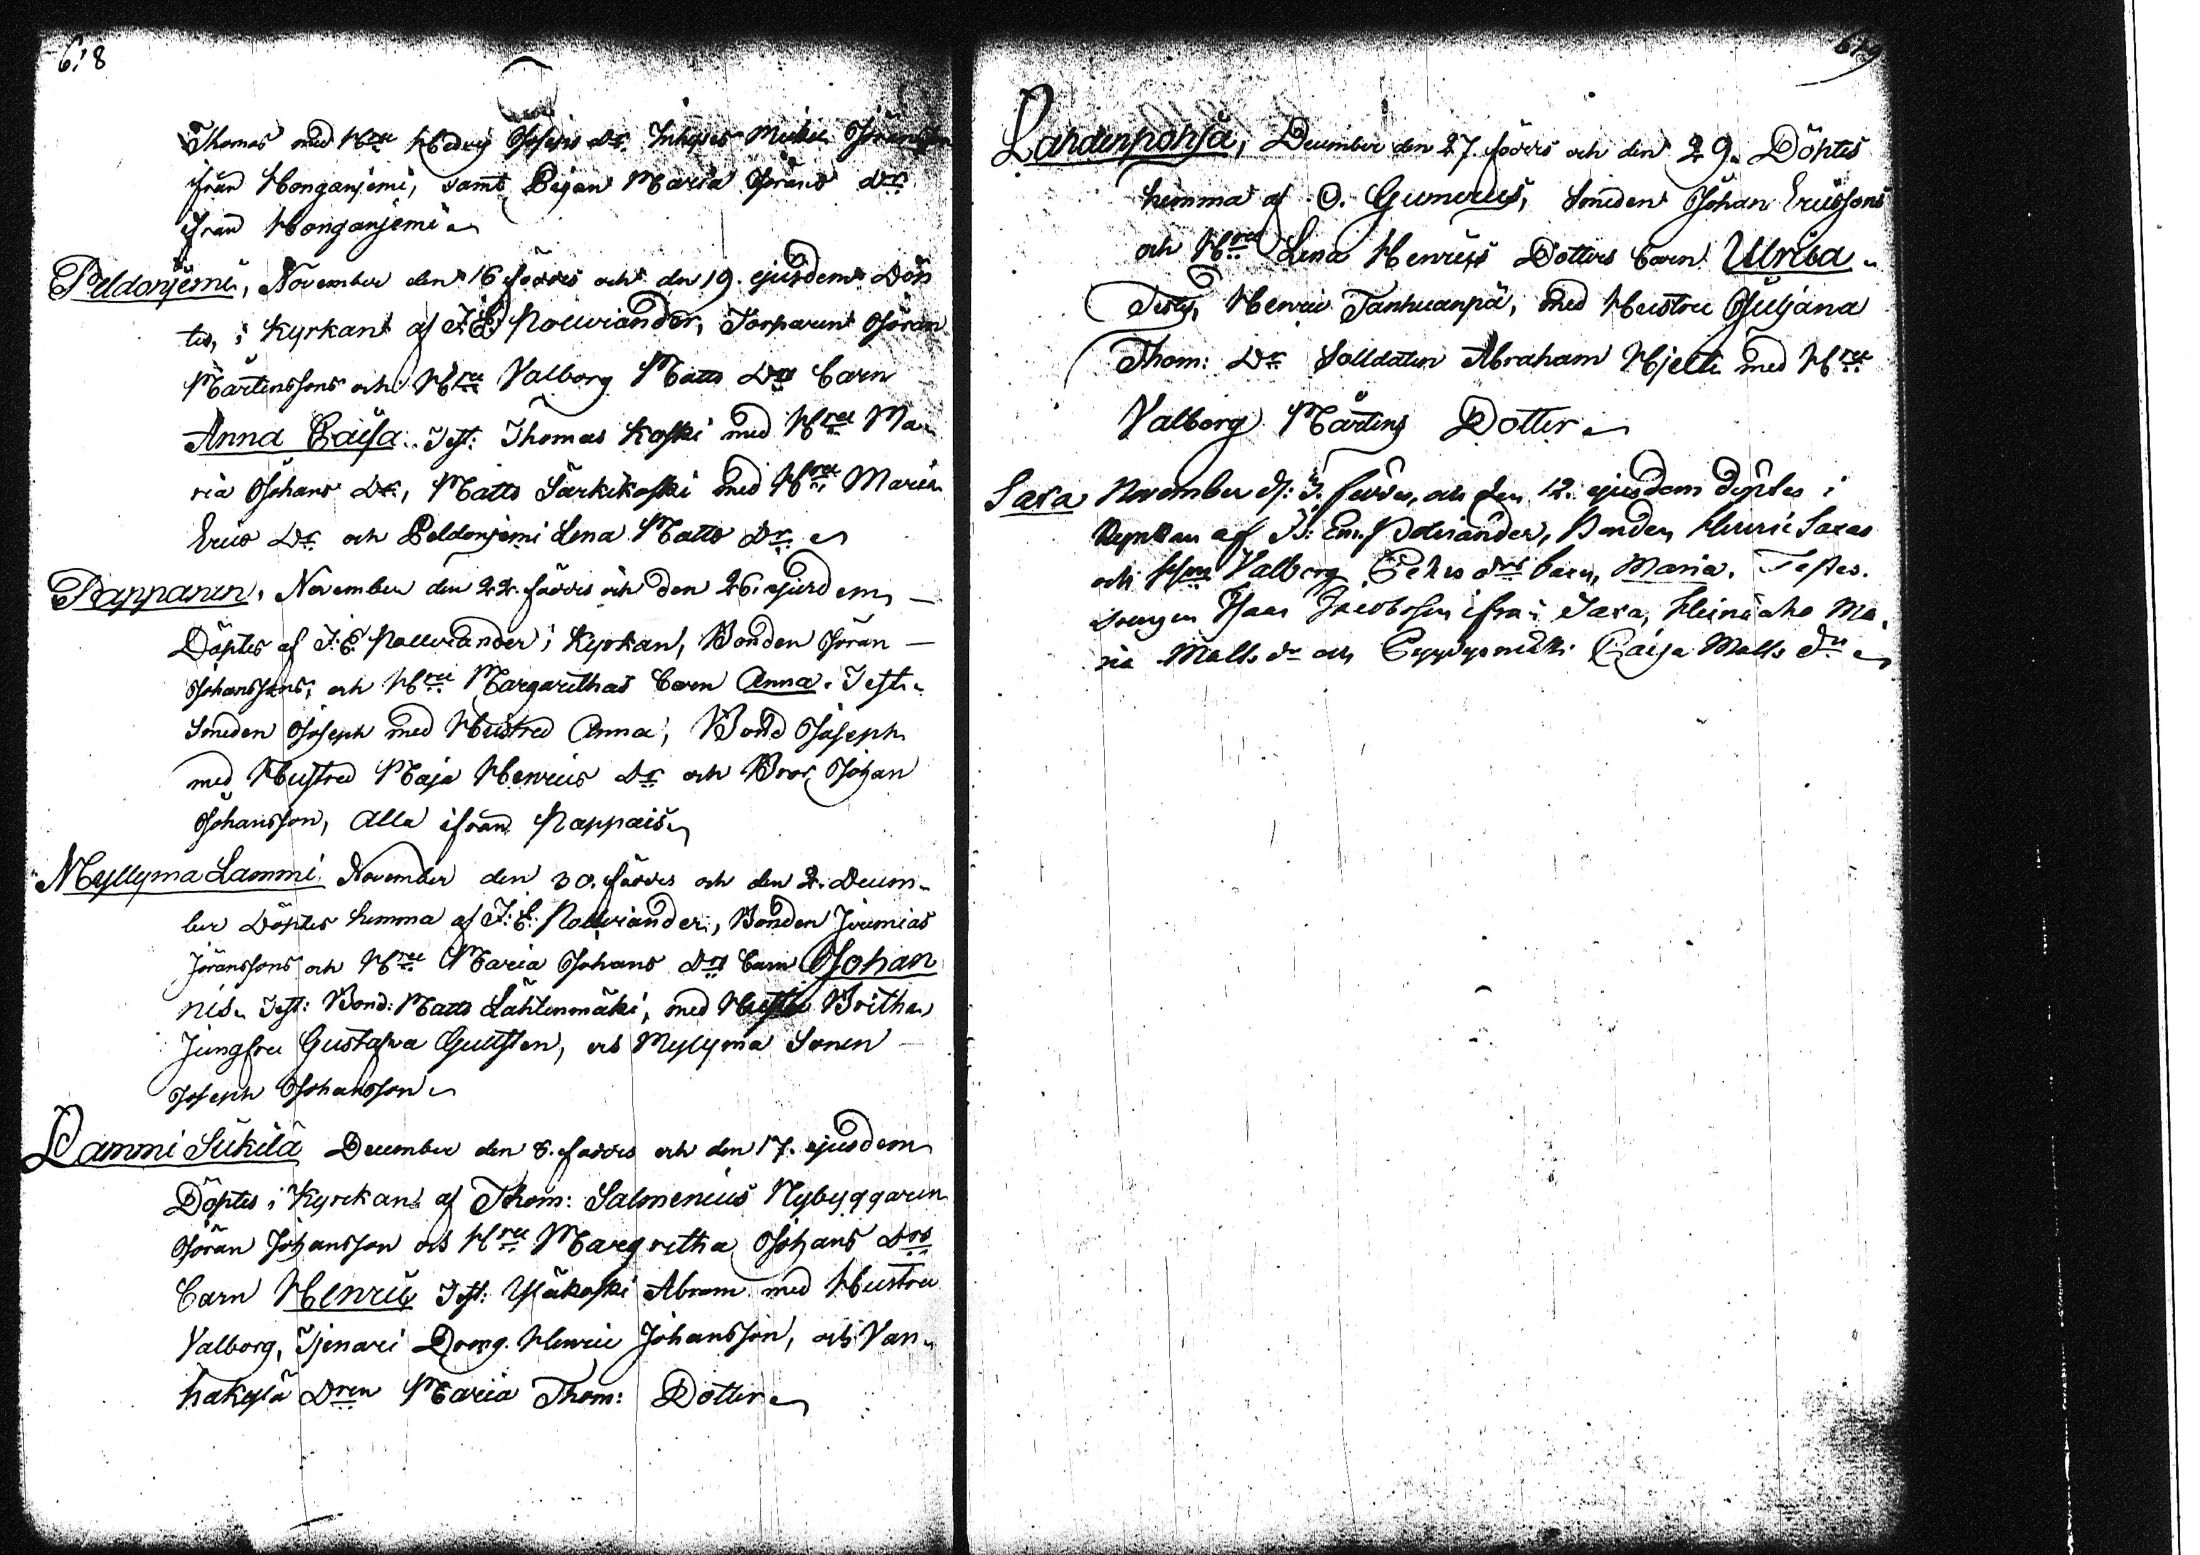 618
Thomas med Hru Hedvig Josephs Dr. Inhyses Michel Jöransson
ifrån Honganjemi, samt Pigan Maria Jörans Dr
ifrån Honganjemi
Peldonjemi, November den 16 föddes och den 19. ejusdem Döp
tes, i Kyrkan af J. E. Polviander, Torparens Jöran
Mårtenssons och Hru Valborg Matts Drs Barn
Anna Caisa. Test: Thomas Koski med Hru Ma
ria Johans Dr, Matts Särkikoski med Hru Maria
Erics Dr och Peldonjemi Lena Matts Dr
Pappanen, November den 22. föddes och den 26. ejusdem
Döptes af J. E. Polviander i Kyrkan, Bonden Jöran
Johanssons, och Hru Margarethas Barn Anna. Test.
Smeden Joseph med Hustru Anna, Bond Joseph
med Hustru Maja Henrics Dr och Bror Johan
Johansson, Alla ifrån Pappais
Myllyma Lammi November den 30. föddes och den 2. Decem-
ber Döptes hemma af J: E: Polviander, Bonden Jeremias
Jöranssons och Hru Maria Johans Drs Barn Johan
nis. Test: Bond: Matts Lähtenmäki, med Hustru Britha
Jungfru Gustafva Guttsten, och Myllyma Sonen
Joseph Johansson
Lammi Sikilä December den 8. föddes och den 17. ejusdem
Döptes i Kyrckan af Thom: Salmenius Nybyggaren
Jöran Johansson och Hru Margretha Johans Drs
Barn Henric Test: Yläkoski Abram med Hustru
Valborg, Tjenari Dreng. Henric Johansson, och Van
hakylä Dren Maria Thom: Dotter
619
Lahdenpohja, December den 27. föddes och den 29. Döptes
hemma af O. Gumerus, Smeden Johan Ericssons
och Hru Lena Henrics Dotters barn Ulrica
Test, Henric Tanhuanpä, med Hustru Juljana
Thom: Dr Solldaten Abraham Hjelte med Hru
Valborg Mårtens Dotter
Saxa November d: 5. föddes, och den 12. ejusdem döptes i
Kyrkan af J: Em. Polviander, Bonden Henric Saxas
och Hru Valborg Pehrs drs barn, Maria. Testes.
Drengen Isaac Jacobsson ifrån Saxa, Heinäaho Ma
ria Matts dr och Caisa Matts dr